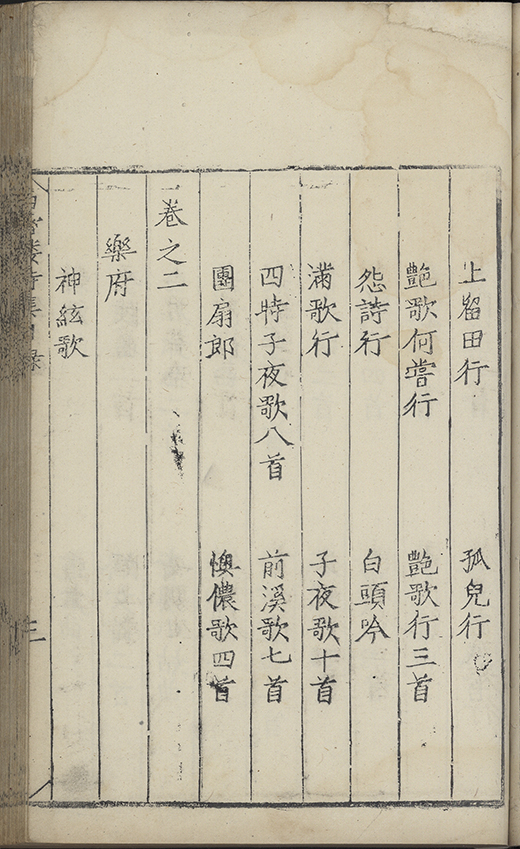 上畱田行 孤兒行
艶歌何嘗行 艶歌行三首
怨詩行 白頭吟
滿歌行 子夜歌十首
四時子夜歌八首 前溪歌七首
團扇郎 懊儂歌四首
卷之二
樂府
神絃歌
詩集目錄
三